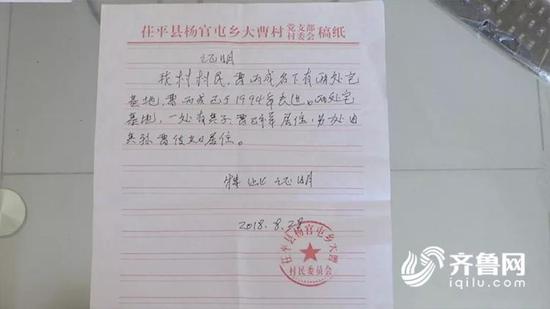 茌平县杨官屯乡大曹村 党支部
村委会 稿纸
证明
我村村民，曹丙成名下有两处宅
基地，曹丙成已于1994年去逝。两处宅
基地，一处有其子，曹 居住，另一处由
其孙曹 居住。
特此证明
2018.8.28
茌平县杨官屯乡大曹
村民委员会
齐鲁网
iqilu.com